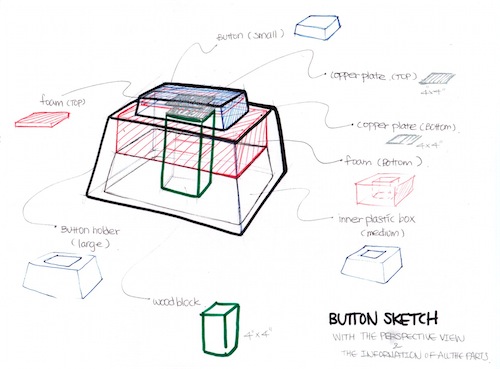 Button (small)
copper plate (TOP)
4x4"
foam (TOP)
copper plate (Bottom).
4x4"
foam (Bottom).
inner plastic box
(medium)
Button holder
(large)
wood block
4'x4"
BUTTON SKETCH
WITH THE PERSPECTIVE VIEW
&
THE INFORMATION OF ALL THE PARTS